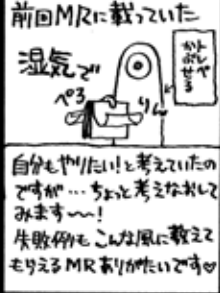 前回MRに載っていた
湿気で
ぺろ
りん
トレペ
かぶせる
自分もやりたい!と考えていたの
ですが…ちょっと考えなおして
みます〜〜!
失敗例も こんな風に教えて
もらえるMRありがたいです♡